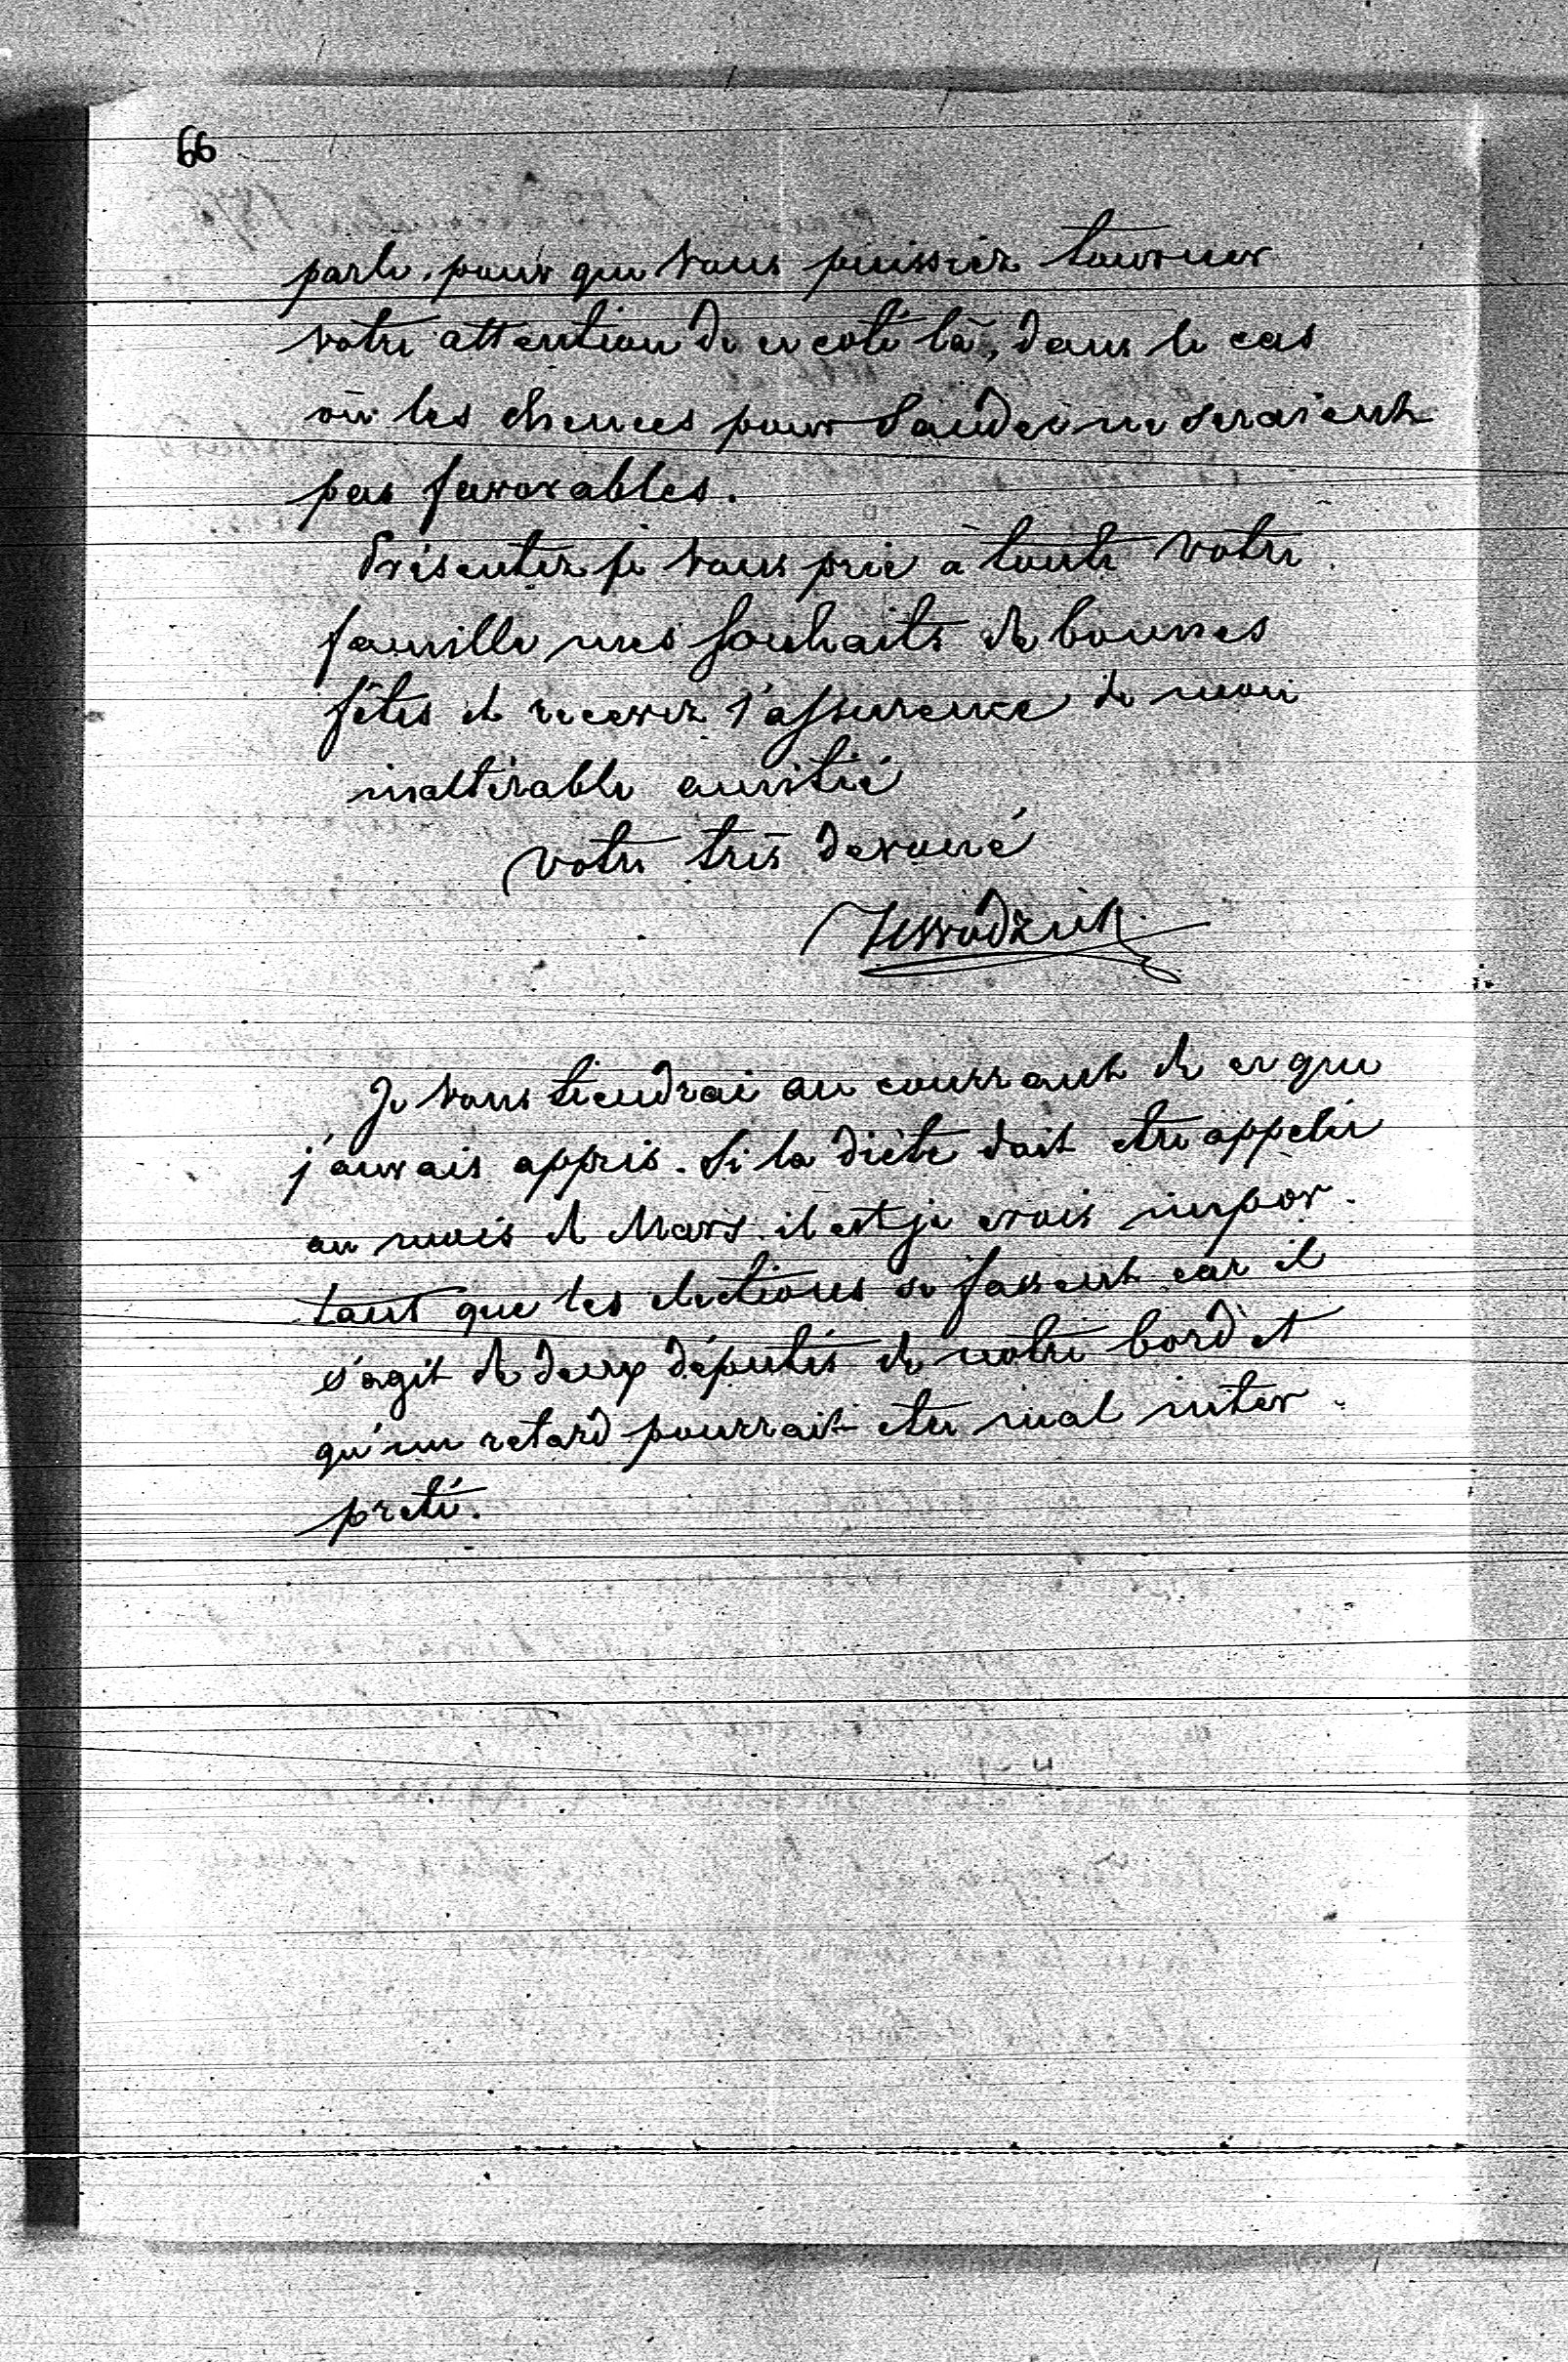 66
parle, pour que vous puissiez tourner
votre attention de ce coté là, dans le cas
où les chences pour Sandec ne seraient
pas favorables.
Présentez je vous prie à toute votre
famille mes souhaits de bonnes
fêtes et recevez l'assurence de mon
inaltérable amitié
votre très devoué
Je vous tiendrai au courrant de ce que
j'aurais appris. Si la diète doit etre appelée
au mois de Mars. il est je crois impor-
tant que les elections se fassent car il
s'agit de deux députés de notre bord et
qu'un retard pourrait etre mal inter-
preté.